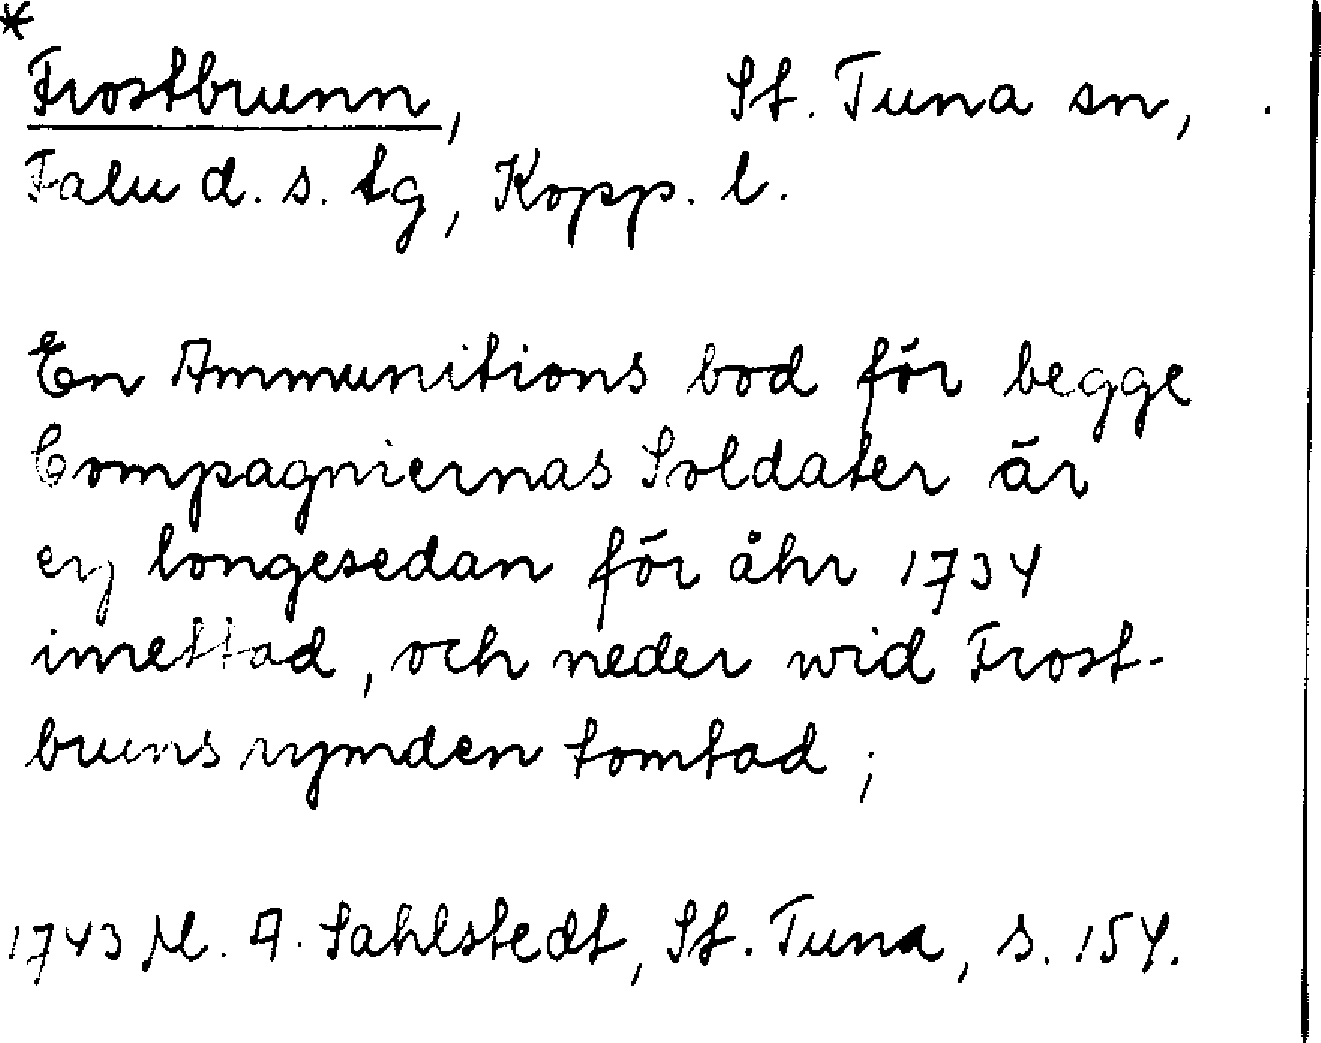 *
Frostbrunn, St. Tuna sn,
Falu d. s. tg, Kopp. l.
En Ammunitions bod för begge
Compagniernas Soldater är
ey longesedan för åhr 1734
inrettad, och neder wid Frost-
bruns rymden tomtad;
1743 M. A. Sahlstedt, St. Tuna, s. 154.